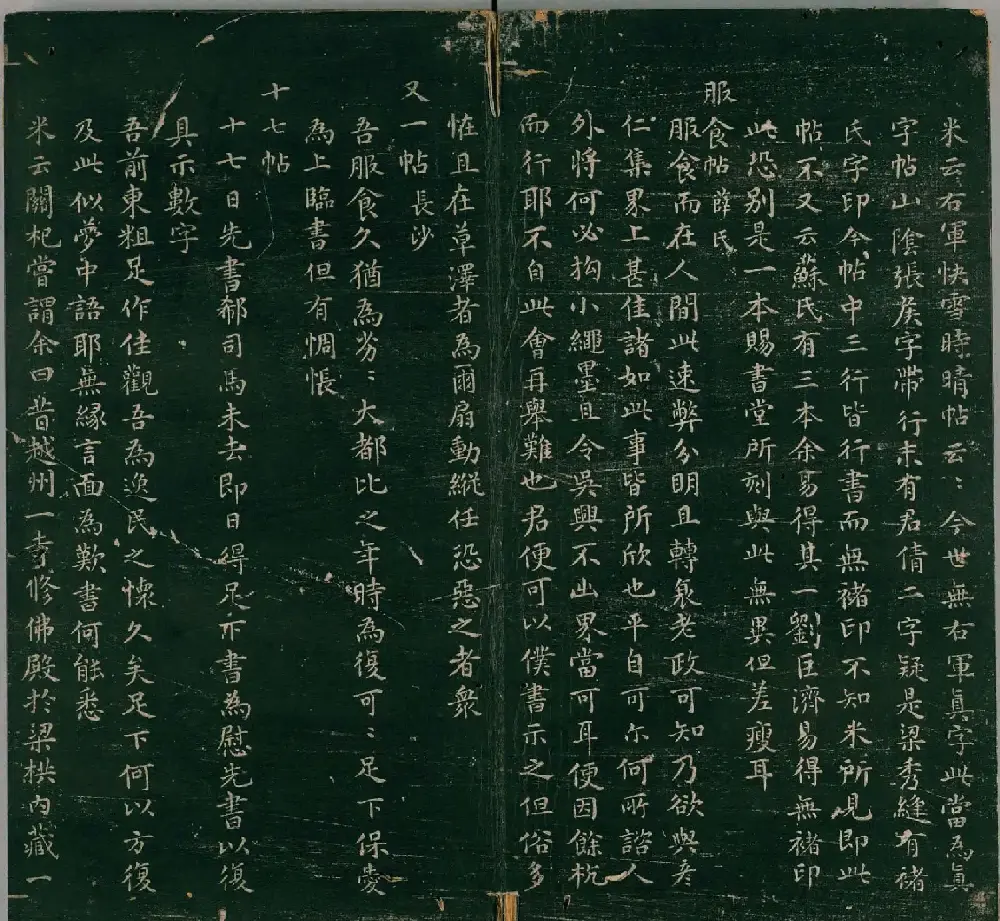 米云右軍快雪時晴帖云〻今世無右軍真字此當為真
字帖山陰張侯字帶行末有君倩二字疑是梁秀縫有褚
氏字印今帖中三行皆行書而無褚印不知米所見即此
帖不又云蘇氏有三本余易得其一劉巨濟易得無褚印
此恐別是一本賜書堂所刻與此無異但差瘦耳
服食帖薛氏
服食而在人間此速弊分明且轉衰老政可知乃欲與彥
仁集界上甚佳諸如此事皆所欣也平自可尒何所諮人
外將何必拘小繩墨且令吳興不出界當可耳便因餘杭
而行耶不自此會再舉難也君便可以僕書示之但俗多
恠且在草澤者為爾扇動縱任恐惡之者眾
又一帖長沙
吾服食久猶為劣〻大都比之年時為復可〻足下保愛
為上臨書但有惆悵
十七帖
十七日先書郗司馬未去即日得足下書為慰先書以復
具示數字
吾前東粗足作佳觀吾為逸民之懷久矣足下何以方復
及此似夢中語耶無緣言面為歎書何能悉
米云關杞嘗謂余曰昔越州一寺修佛殿於梁栱內藏一